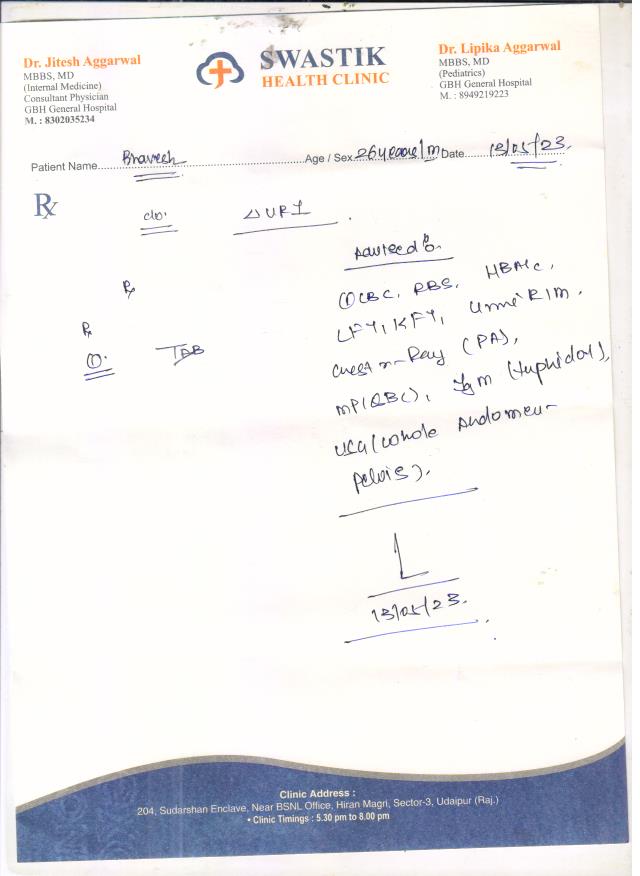 Dr. Jitesh Aggarwal
MBBS, MD
(Internal Medicine)
Consultant Physician
GBH General Hospital
M. : 8302035234
SWASTIK
HEALTH CLINIC
Dr. Lipika Aggarwal
MBBS, MD
(Pediatrics)
GBH General Hospital
M. : 8949219223
Patient Name Bhavesh Age / Sex 26 years/m Date 13/05/23.
Rx
c/o. △ URI
Advised
Rx
① CBC, RBS, HBA1c,
Rx
LFT, KFT, Urine R/M.
①. TAB
Chest x-Ray (PA),
MP(QBC), IgM (typhidot),
USG (whole Abdomen-
Pelvis).
13/05/23.
Clinic Address :
204, Sudarshan Enclave, Near BSNL Office, Hiran Magri, Sector-3, Udaipur (Raj.)
• Clinic Timings : 5.30 pm to 8.00 pm